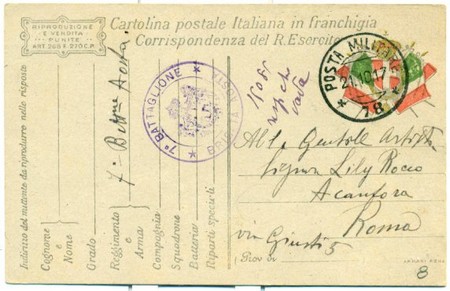 RIPRODUZIONE
E VENDITA
PUNITE
ART. 268 E 210 C.P.
Cartolina postale Italiana in franchigia
Corrispondenza del R. Esercito
POSTA MILITARE
21.10.17
* 78 *
7° BATTAGLIONE * * BRIGATA AOSTA
7° Battne Aosta
Indirizzo del mittente da riprodurre nelle risposte
Cognome e Nome
Grado
Reggimento e Arma
Compagnia
Squadrone
Batteria
Riparti speciali
All. Gentile Artista
Signora Lily Rocco
Acanfora
Roma
via Giusti 5
8